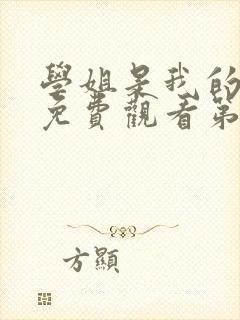 學姐是我的
免費觀看第
方顯